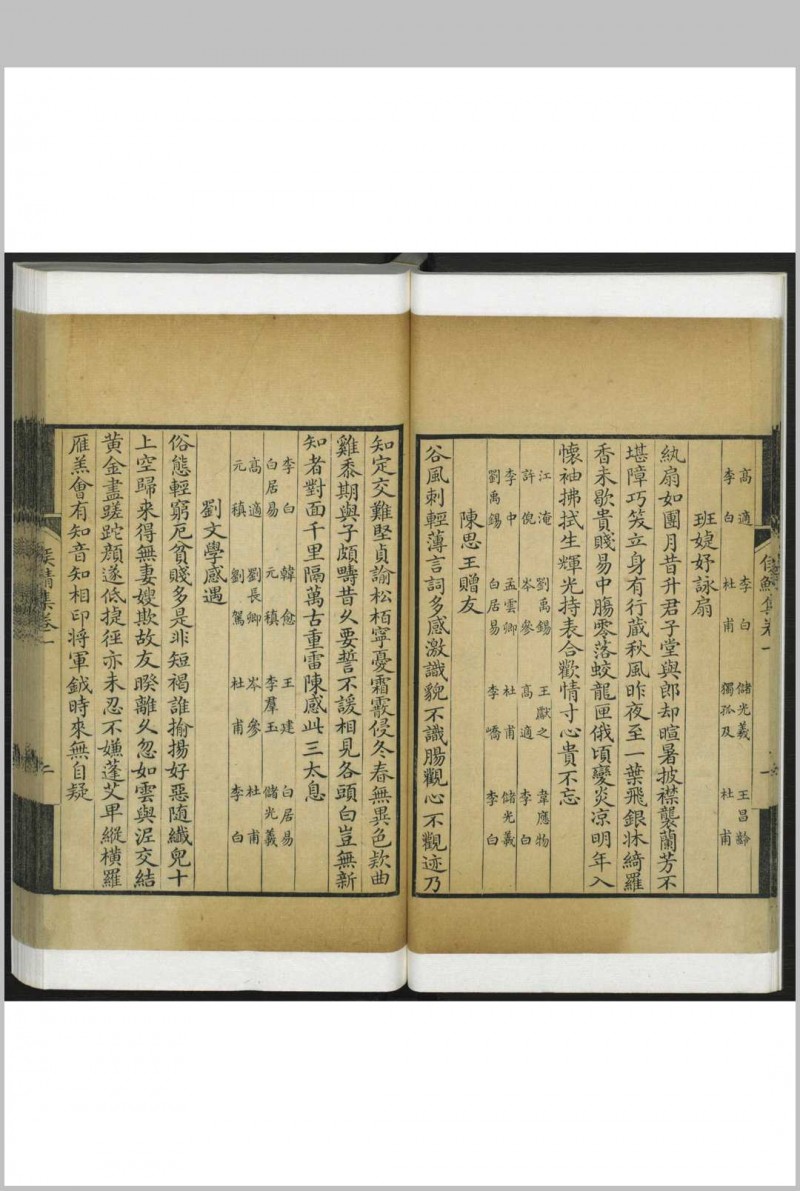 高適　李白　儲光羲　王昌齡
李白　杜甫　獨孤及　杜甫
班婕妤詠扇
紈扇如團月昔升君子堂與郎却暄暑披襟襲蘭芳不
堪障巧笑立身有行蔵秋風昨夜至一葉飛銀牀綺羅
香未歇貴賤易中腸零落蛟龍匣俄頃變炎凉明年入
懐袖拂拭生輝光持表合歡情寸心貴不忘
江淹　劉禹錫　王獻之　韋應物
許倪　岑參　高適　李白
李中　孟雲卿　杜甫　儲光羲
劉禹錫　白居易　李嶠　李白
陳思王贈友
谷風刺輕薄言詞多感激識貌不識腸觀心不觀迹乃
知定交難堅貞諭松栢寧憂霜霰侵冬春無異色欵曲
雞黍期與子頗疇昔久要誓不諼相見各頭白豈無新
知者對面千里隔萬古重雷陳感此三太息
李白　韓愈　王建　白居易
白居易　元稹　李羣玉　儲光羲
高適　劉長卿　岑參　杜甫
元稹　劉駕　杜甫　李白
劉文學感遇
俗態輕窮厄貧賤多是非短褐誰揄揚好惡隨纖兒十
上空歸來得無妻嫂欺故友暌離久忽如雲與泥交結
黄金盡蹉跎顔遂低捷徑亦未忍不嫌蓬艾卑縱横羅
雁羔會有知音知相印将軍鉞時來無自疑
侯鯖集卷一
二